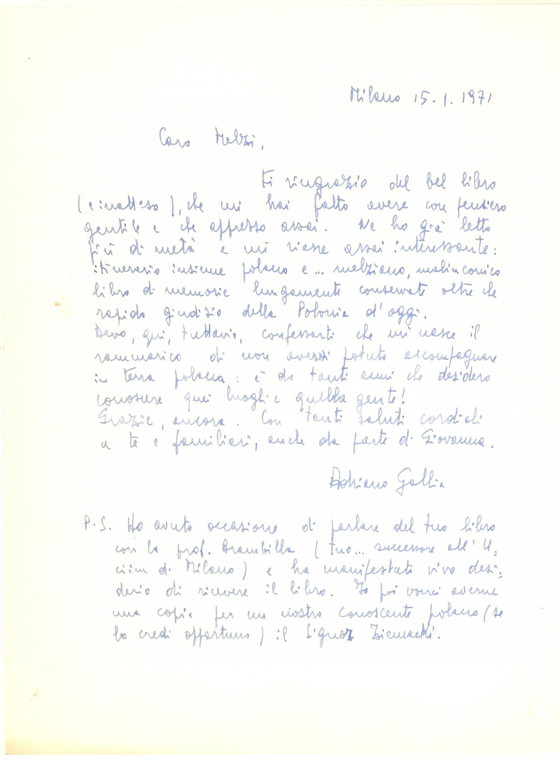 Milano 15.1.1971
Caro Melzi,
Ti ringrazio del bel libro
(e inatteso), che mi hai fatto avere con pensiero
gentile e che apprezzo assai. Ne ho già letto
più di metà e mi riesce assai interessante:
itinerario insieme polacco e... melziano, malinconico
libro di memorie lungamente conservate oltre che
rapido giudizio della Polonia d'oggi.
Devo, qui, tuttavia, confessarti che mi nasce il
rammarico di non averti potuto accompagnare
in terra polacca: è da tanti anni che desidero
conoscere quei luoghi e quella gente!
Grazie, ancora. Con tanti saluti cordiali
a te e familiari, anche da parte di Giovanna.
Adriano Gallia
P.S. Ho avuto occasione di parlare del tuo libro
con la prof. Brambilla (tuo... successore all'U=
ciim di Milano) e ha manifestato vivo desi=
derio di ricevere il libro. Io poi vorrei averne
una copia per un nostro conoscente polacco (se
lo credi opportuno) il Signor